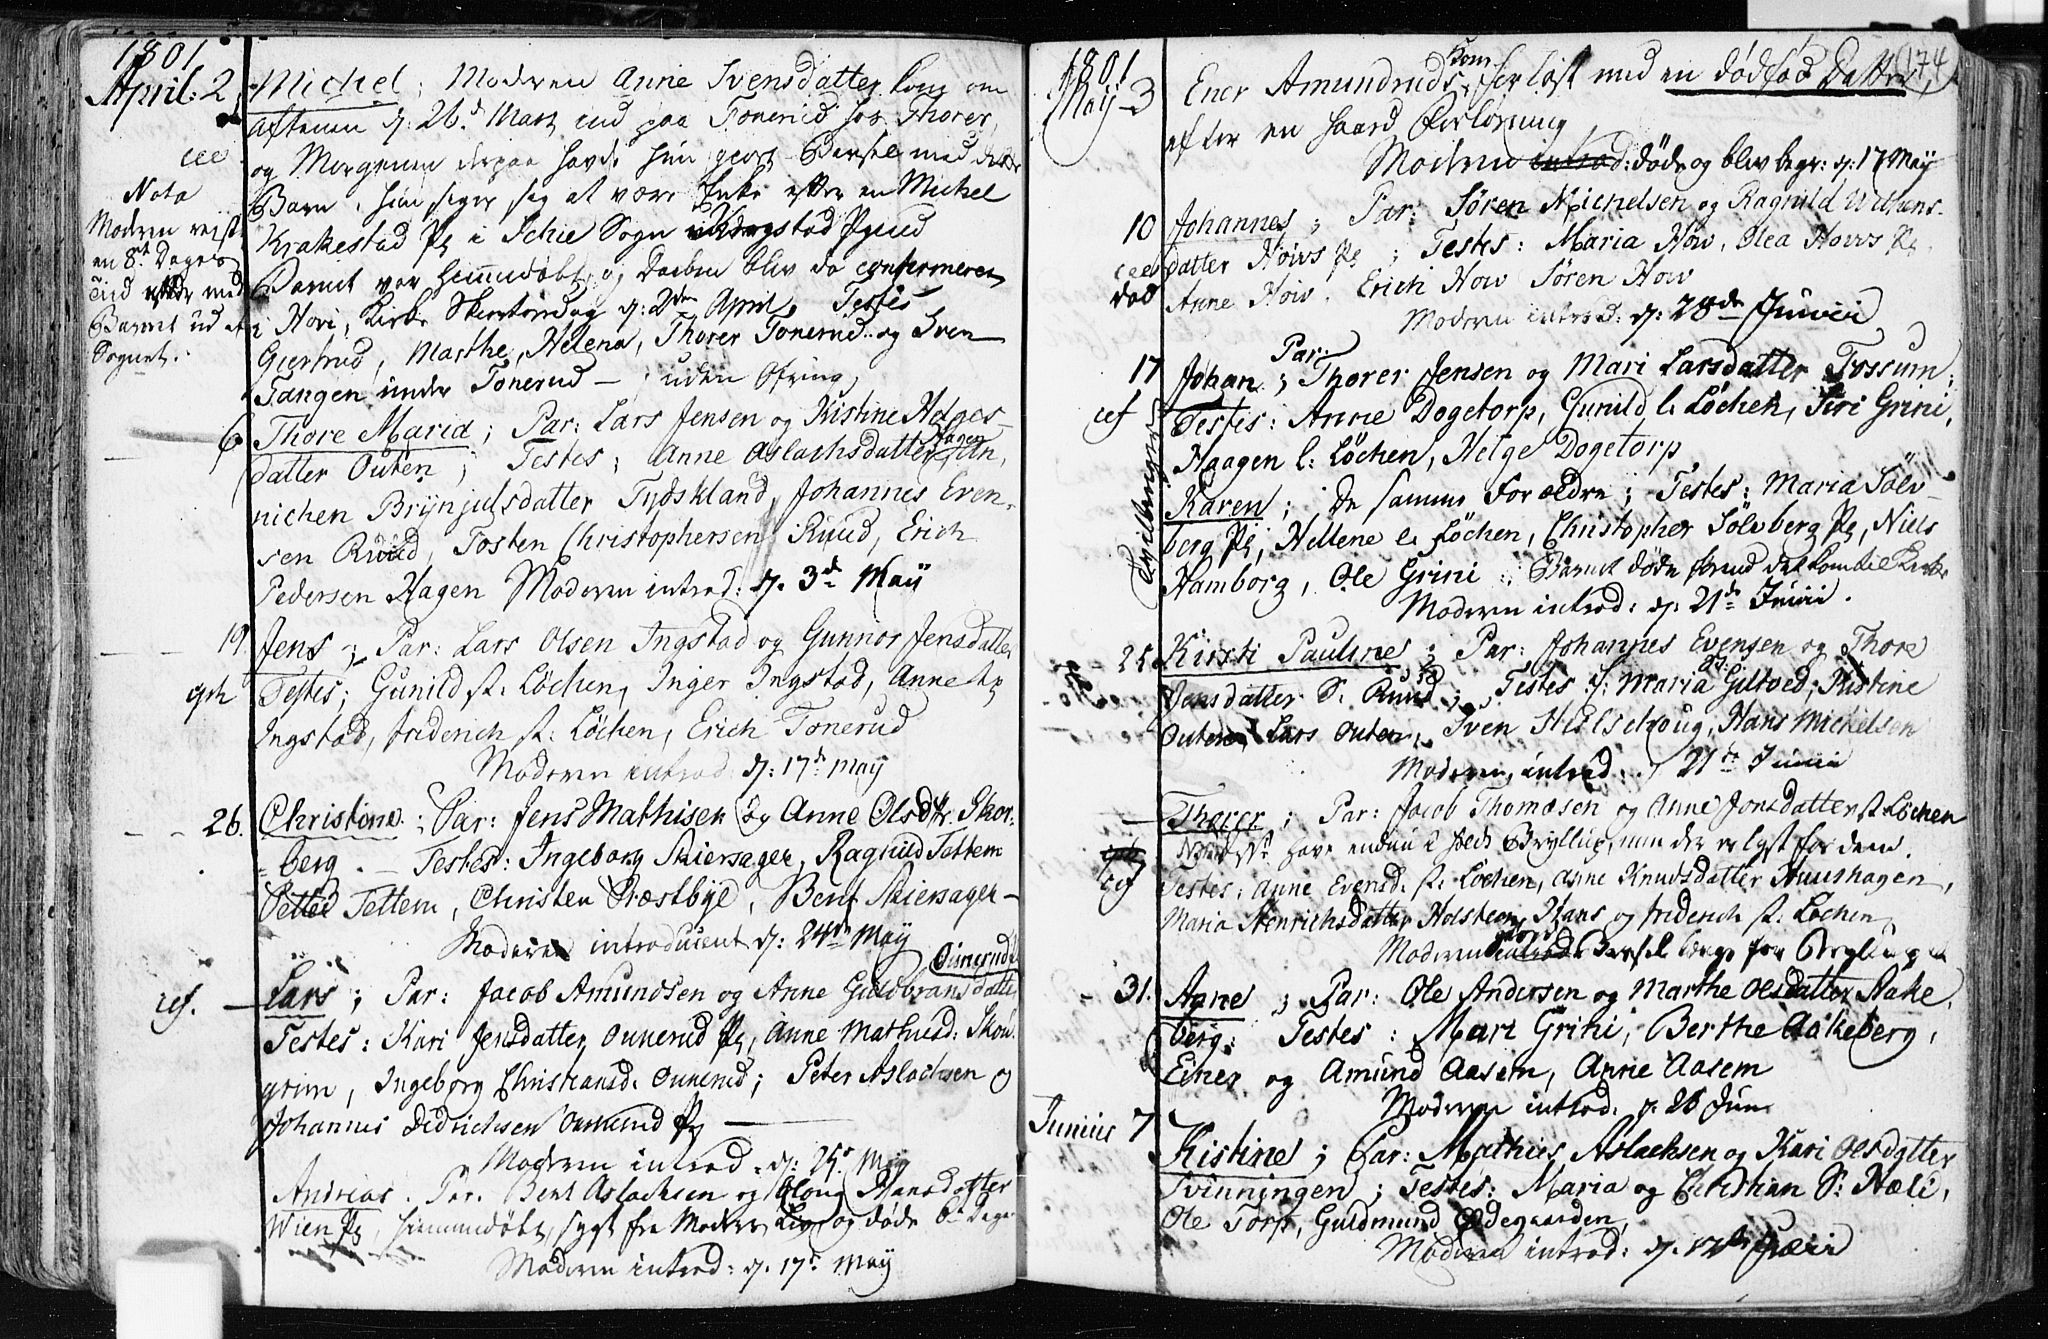 1801
April: 2
Michel; Modren Anne Svensdatter kom om
Aftenen d: 26.d Mart ind paa Tonerud hos Thorer,
og Morgenen derpaa havde hun giort Barsel med dette
Barn, hun siger sig at være Enke efter en Michel
Krakestad Pl i Schie Sogn
Barnet var hiemmedøbt, og Daaben blev da confirmeret
i Hovi Kirke Skertorsdag d: 2den April Testes
Giertrud, Marthe, Helena, Thorer Tonerud og Sven
Tangen under Tonerud — uden Ofring
Nota
Modren reist
en 8te Dages
Tid efter med
Barnet ud af
Sognet.
6 Thore Maria; Par: Lars Jensen og Kistine Helges-
datter Outen; Testes; Anne Aslachsdatter Hagen, An-
nichen Brynjulsdatter Tydskland, Johannes Even-
sen Ruud, Tosten Christophersen Ruud, Erich
Pedersen Hagen Modren introd: d. 3de Maÿ
19 Jens; Par: Lars Olsen Ingstad og Gunnor Jensdatter
Testes; Gunild st: Løchen, Inger Ingstad, Anne
Ingstad, friderich st: Løchen, Erich Tonerud
Modren introd: d: 17de Maÿ
26. Christine; Par: Jens Mathisen og Anne Olsdtr. Skor-
berg. — Testes: Ingeborg Skiersager, Ragnild Tettem
Petter Tettem, Christen Præstbye, Bent Skiersager —
Modren introduceret d: 24de Maÿ
Lars; Par: Jacob Amundsen og Anne Guldbransdatter Ounerud
Testes: Kari Jensdatter Ounerud Pl, Anne Mathisd: Skou-
grim, Ingeborg Christiansd. Ounerud; Peter Aslachsen og
Johannes Didrichsen Ounerud Pl —
Modren introd: d: 25. Maÿ
Andreas. Par. Bent Aslachsen og Oloug Hansdatter
Wien Pl, hiemmedøbt, sygt fra Moders Liv og døde 6te Dage
Modren introd: d. 17de Maÿ
174
1801
Maÿ 3 Ener Amundruds Kone forløst med en dødfød Datter
efter en haard Forløsning
Modren introd: døde og blev begr: d: 17 Maÿ
10 Johannes; Par: Søren Michelsen og Ragnild Wilhems-
datter Høivs Pl; Testes: Maria How, Olea Hows Pl,
Anne How, Erich How Søren How
Modren introd: d: 28de Junii
17 Johan; Par: Thorer Jensen og Mari Larsdatter Tossum;
Testes: Anne Dogetorp, Gunild l: Løchen, Siri Grini,
Haagen l: Løchen, Helge Dogetorp
Tvillinger
Karen; De samme Forældre; Testes: Maria Sølv-
berg Pl, Hellene l: Løchen, Christopher Sølvberg Pl, Niels
Hamborg, Ole Grini; Barnet døde førend det kom til Kirke
Modren introd: d: 21de Junii.
25. Kirsti Pauline; Par: Johannes Evensen og Thore
Jensdatter S: Ruud; Testes: Maria Giltved, Kistine
Outen, Lars Outen, Sven Hielselzoug, Hans Michelsen
Modren introd: d 21de Junii
Thorer; Par: Jacob Thomæsen og Anne Jonsdatter st: Løchen
have endnu ei holdt Bryllup, men der er lyst for dem.
Testes: Anne Evensd. st: Løchen, Anne Knudsdatter Huushagen,
Maria Henrichsdatter Holsteen, Hans og friderich st: Løchen
Modren giorde Barsel længe før Bryllupet
31. Anne; Par: Ole Andersen og Marthe Olsdatter Aake-
berg. Testes: Mari Grini, Berthe Aakeberg,
Einer og Amund Aasem, Anne Aasem
Modren introd: d. 26 Jun
Junius 7 Kistine; Par: Mathis Aslachsen og Kari Olsdatter
Tvinningen; Testes: Maria og Christian S: Hæli,
Ole Torp, Guldmund Ødegaarden,
Modren introd: d. 12te Julii